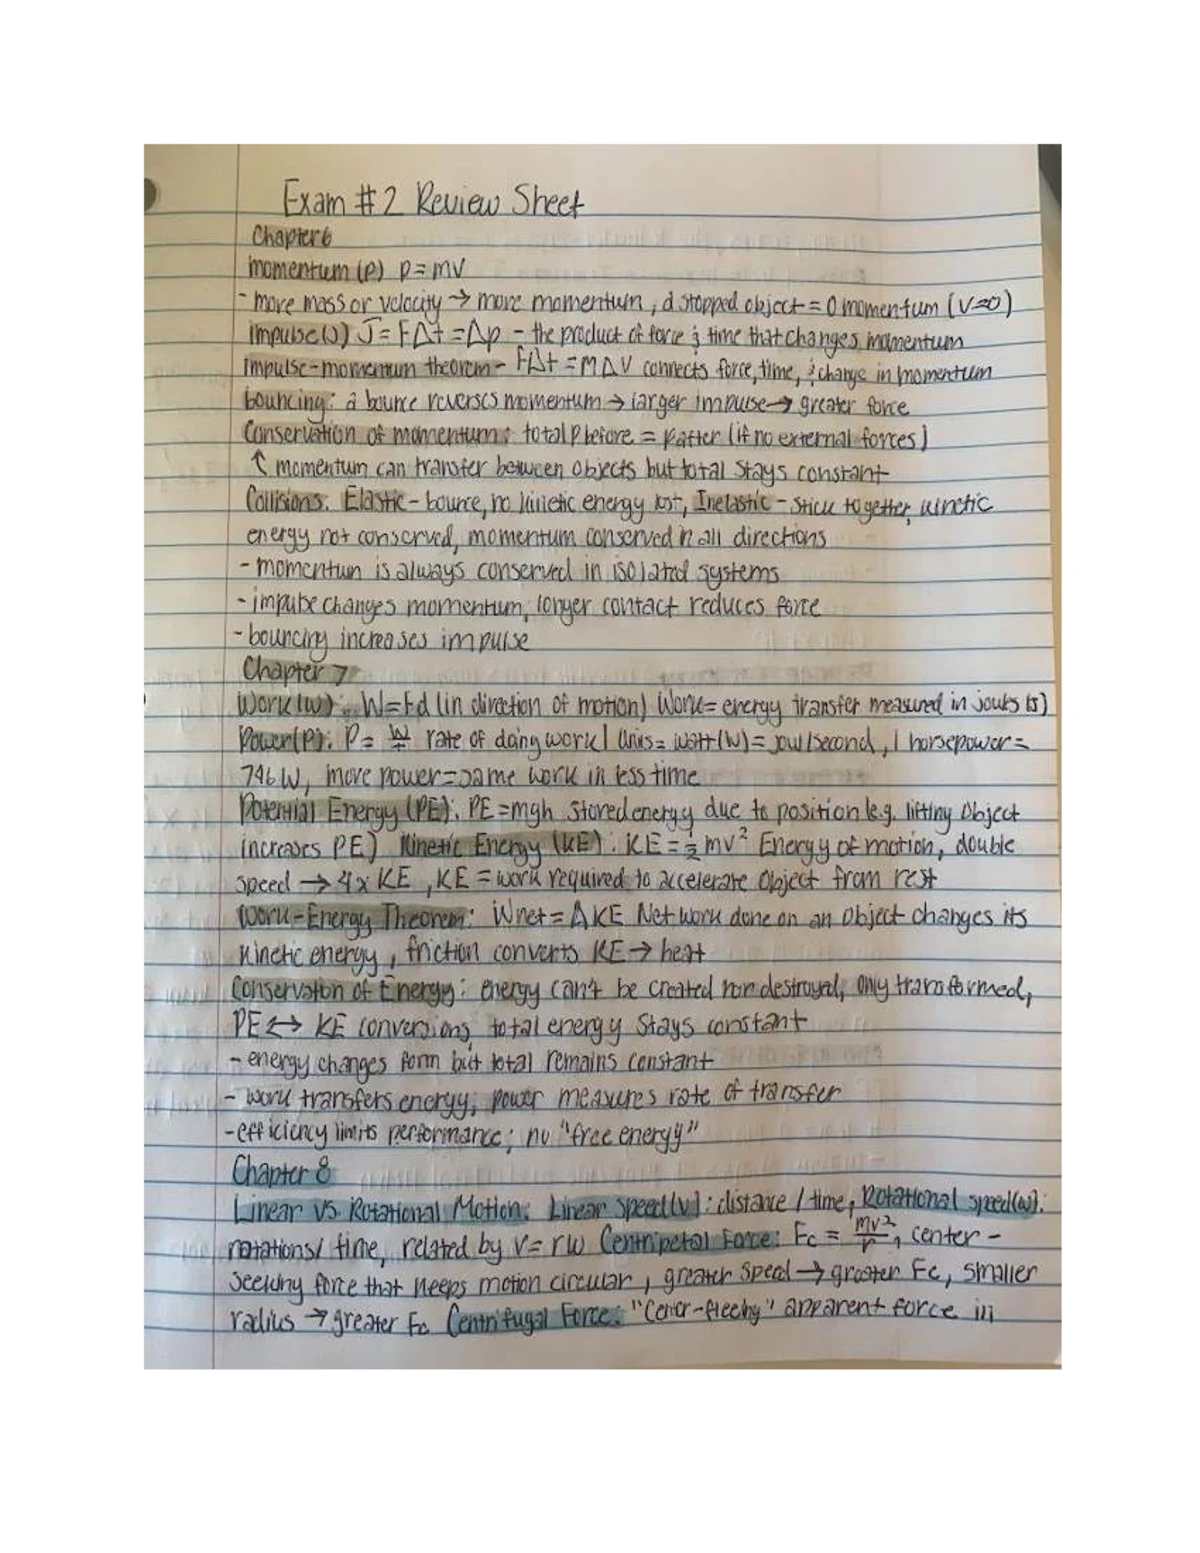 Exam #2 Review Sheet
Chapter 6
momentum (p) p=mv
- more mass or velocity → more momentum, a stopped object = 0 momentum (v=0)
impulse(J) J=FΔt=Δp - the product of force & time that changes momentum
impulse-momentum theorem- FΔt=mΔV connects force, time, & change in momentum
bouncing: a bounce reverses momentum → larger impulse → greater force
Conservation of momentum: total Pbefore = Pafter (if no external forces)
↑ momentum can transfer between objects but total stays constant
Collisions: Elastic - bounce, no kinetic energy lost, Inelastic - stick together, kinetic
energy not conserved, momentum conserved in all directions
- momentum is always conserved in isolated systems
- impulse changes momentum, longer contact reduces force
- bouncing increases impulse
Chapter 7
Work(w): W=Fd (in direction of motion) Work= energy transfer measured in joules (J)
Power(P): P= W/t rate of doing work | Units= watt(W)= joul/second, 1 horsepower=
746 W, more power=same work in less time
Potential Energy (PE): PE=mgh stored energy due to position (e.g. lifting object
increases PE) Kinetic Energy (KE): KE=½mv² Energy of motion, double
speed → 4x KE, KE = work required to accelerate object from rest
Work-Energy Theorem: Wnet=ΔKE Net work done on an object changes its
kinetic energy, friction converts KE → heat
Conservation of Energy: energy can't be created nor destroyed, only transformed,
PE ↔ KE conversions, total energy stays constant
- energy changes form but total remains constant
- work transfers energy; power measures rate of transfer
- efficiency limits performance; no "free energy"
Chapter 8
Linear vs. Rotational Motion: Linear speed(v): distance / time, Rotational speed(ω):
rotations/ time, related by v= rω Centripetal Force: Fc = mv²/r, center-
seeking force that keeps motion circular, greater speed → greater Fc, smaller
radius → greater Fc Centrifugal Force: "Center-fleeing" apparent force in